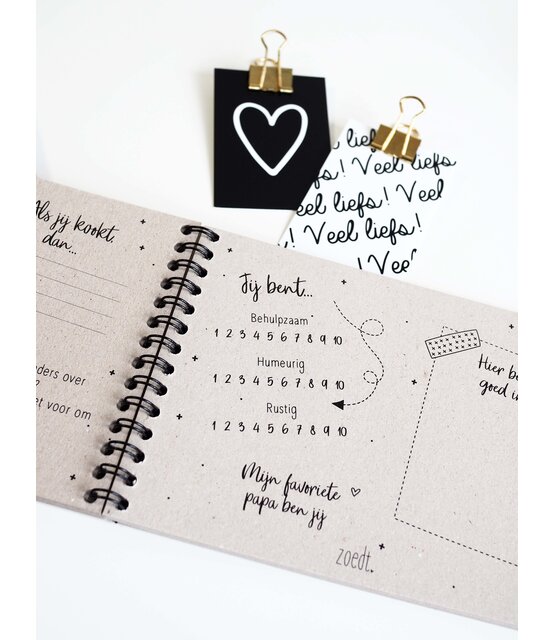 liefs! Veel liefs
! Veel liefs!
liefs! Veel liefs
! Veel liefs!
Veel
Als jij kookt,
dan...
over
et voor om
Jij bent...
Behulpzaam
1 2 3 4 5 6 7 8 9 10
Humeurig
1 2 3 4 5 6 7 8 9 10
Rustig
1 2 3 4 5 6 7 8 9 10
Mijn favoriete
papa ben jij
zoedt.
Hier be
goed in